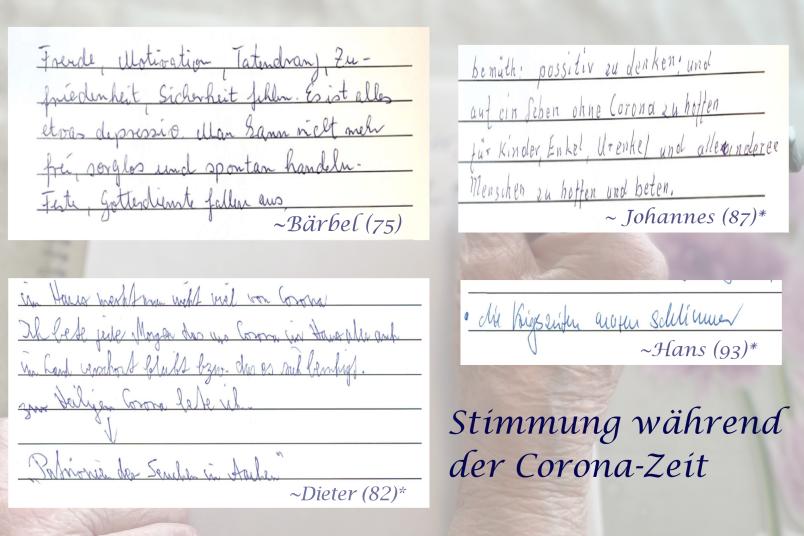 Freude, Motivation, Tatendrang, Zu-
friedenheit, Sicherheit fehlen. Es ist alles
etwas depressiv. Man kann nicht mehr
frei, sorglos und spontan handeln.
Feste, Gottesdienste fallen aus.
~Bärbel (75)
bemüth: possitiv zu denken: und
auf ein Leben ohne Corona zu hoffen
für Kinder, Enkel, Urenkel und alle anderee
Menschen zu hoffen und beten.
~ Johannes (87)*
im Haus merkt man nicht viel von Corona
Ich bete jeden Morgen das uns Corona im Haus aber auch
im Land verschont bleibt bzw. das es sich beruhigt.
zur Heiligen Corona bete ich.
"Patronin der Seuchen in Aachen"
~Dieter (82)*
• die Krigszeiten waren schlimmer
~Hans (93)*
Stimmung während
der Corona-Zeit